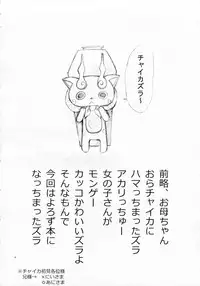 チャイカズラ~
前略、お母ちゃん
おらチャイカに
ハマっちまったズラ
アカリっちゅー
女の子さんが
モンゲー
カッコかわいいズラよ
そんなもんで
今回はよろず本に
なっちまったズラ
※チャイカ初見各位様
兄様→×にいさま
○あにさま